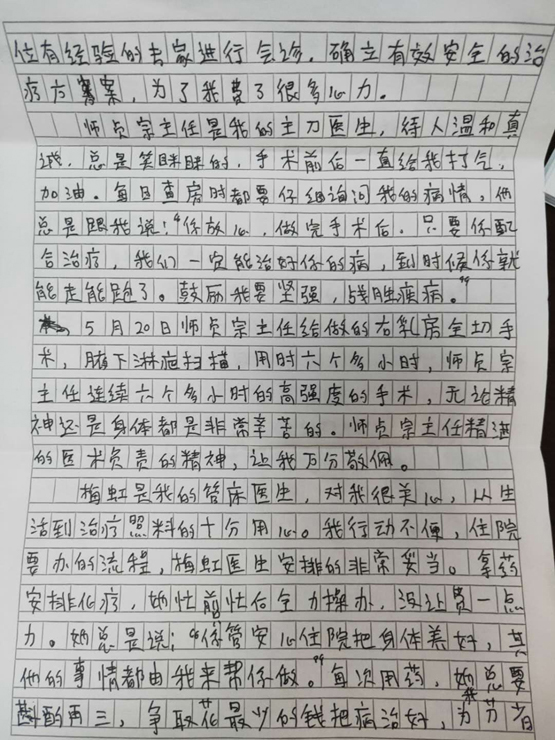 位有经验的专家进行会诊.确立有效安全的治
疗方案案,为了我费了很多心力。
师贞宗主任是我的主刀医生,待人温和真
诚.总是笑眯眯的,手术前后一直给我打气,
加油.每日查房时都要仔细询问我的病情,他
总是跟我说:“你放心,做完手术后.只要你配
合治疗,我们一定能治好你的病,到时候你就
能走能跑了。鼓励我要坚强,战胜疾病。”
5月20日师贞宗主任给做的右乳房全切手
术,腋下淋疤扫描,用时六个多小时,师贞宗
主任连续六个多小时的高强度的手术,无论精
神还是身体都是非常辛苦的.师贞宗主任精湛
的医术负责的精神,让我万分敬佩。
梅虹是我的管床医生,对我很关心,从生
活到治疗照料的十分用心。我行动不便,住院
要办的流程,梅虹医生安排的非常妥当。拿药
安排化疗,她忙前忙后全力操办,没让费一点
力。她总是说:“你管安心住院把身体养好,其
他的事情都由我来帮你做。”每次用药,她总要
斟酌再三,争取花最少的钱把病治好,为我